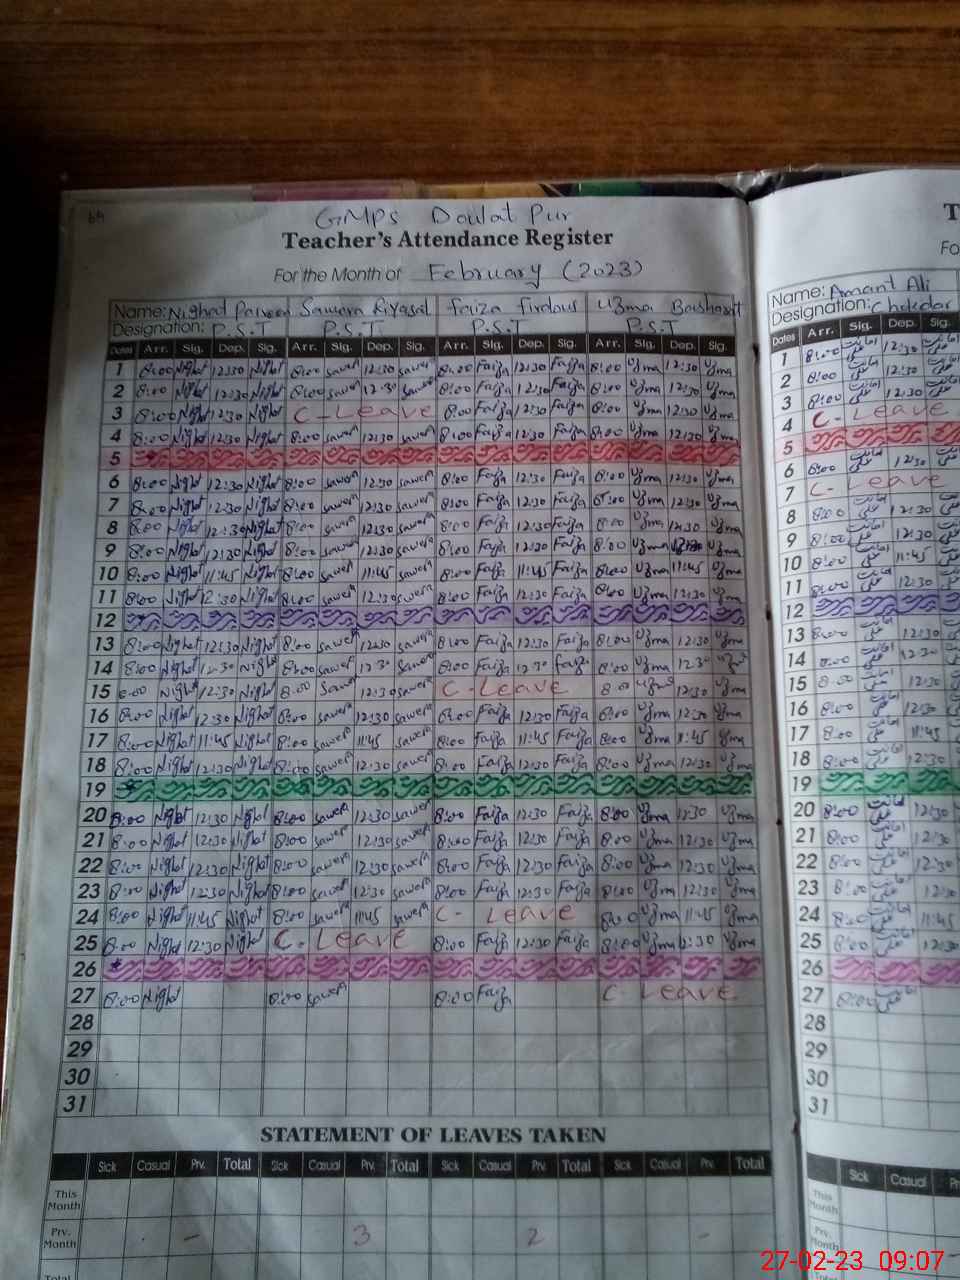 GMPS Doulat Pur
Teacher's Attendance Register
For the Month of February (2023)
Name: Nighat Parveen Samera Riyasat Faiza Firdous Uzma Basharat
Designation: P.S.T P.S.T P.S.T P.S.T
Dates Arr. Sig. Dep. Sig. Arr. Sig. Dep. Sig. Arr. Sig. Dep. Sig. Arr. Sig. Dep. Sig.
1 8:00 Nighat 12:30 Nighat 8:00 12:30 8:00 Faiza 12:30 Faiza 8:00 Uzma 12:30 Uzma
2 8:00 Nighat 12:30 Nighat 8:00 12:30 8:00 Faiza 12:30 Faiza 8:00 Uzma 12:30 Uzma
3 8:00 Nighat 12:30 Nighat C-Leave 8:00 Faiza 12:30 Faiza 8:00 Uzma 12:30 Uzma
4 8:00 Nighat 12:30 Nighat 8:00 12:30 8:00 Faiza 12:30 Faiza 8:00 Uzma 12:30 Uzma
5
6 8:00 Nighat 12:30 Nighat 8:00 12:30 8:00 Faiza 12:30 Faiza 8:00 Uzma 12:30 Uzma
7 8:00 Nighat 12:30 Nighat 8:00 12:30 8:00 Faiza 12:30 Faiza 8:00 Uzma 12:30 Uzma
8 8:00 Nighat 12:30 Nighat 8:00 12:30 8:00 Faiza 12:30 Faiza 8:00 Uzma 12:30 Uzma
9 8:00 Nighat 12:30 Nighat 8:00 12:30 8:00 Faiza 12:30 Faiza 8:00 Uzma Uzma
10 8:00 Nighat 11:45 Nighat 8:00 11:45 8:00 Faiza 11:45 Faiza 8:00 Uzma 11:45 Uzma
11 8:00 Nighat 12:30 Nighat 8:00 12:30 8:00 Faiza 12:30 Faiza 8:00 Uzma 12:30 Uzma
12
13 8:00 Nighat 12:30 Nighat 8:00 12:30 8:00 Faiza 12:30 Faiza 8:00 Uzma 12:30 Uzma
14 8:00 Nighat 12:30 Nighat 8:00 12:30 8:00 Faiza 12:30 Faiza 8:00 Uzma 12:30 Uzma
15 8:00 Nighat 12:30 Nighat 8:00 12:30 C-Leave 8:00 Uzma 12:30 Uzma
16 8:00 Nighat 12:30 Nighat 8:00 12:30 8:00 Faiza 12:30 Faiza 8:00 Uzma 12:30 Uzma
17 8:00 Nighat 11:45 Nighat 8:00 11:45 8:00 Faiza 11:45 Faiza 8:00 Uzma 11:45 Uzma
18 8:00 Nighat 12:30 Nighat 8:00 12:30 8:00 Faiza 12:30 Faiza 8:00 Uzma 12:30 Uzma
19
20 8:00 Nighat 12:30 Nighat 8:00 12:30 8:00 Faiza 12:30 Faiza 8:00 Uzma 12:30 Uzma
21 8:00 Nighat 12:30 Nighat 8:00 12:30 8:00 Faiza 12:30 Faiza 8:00 Uzma 12:30 Uzma
22 8:00 Nighat 12:30 Nighat 8:00 12:30 8:00 Faiza 12:30 Faiza 8:00 Uzma 12:30 Uzma
23 8:00 Nighat 12:30 Nighat 8:00 12:30 8:00 Faiza 12:30 Faiza 8:00 Uzma 12:30 Uzma
24 8:00 Nighat 11:45 Nighat 8:00 11:45 C- Leave 8:00 Uzma 11:45 Uzma
25 8:00 Nighat 12:30 Nighat C- Leave 8:00 Faiza 12:30 Faiza 8:00 Uzma 12:30 Uzma
26
27 8:00 Nighat 8:00 8:00 Faiza C- Leave
28
29
30
31
STATEMENT OF LEAVES TAKEN
Sick Casual Prv. Total Sick Casual Prv. Total Sick Casual Prv. Total Sick Casual Prv. Total
This Month
Prv. Month - 3 2 -
Total
T
Fo
Name: Amant Ali
Designation: Chokedar
Dates Arr. Sig. Dep. Sig.
1 8:00 امانت علی 12:30 امانت علی
2 8:00 امانت علی 12:30 امانت علی
3 8:00 امانت علی 12:30 امانت علی
4 C- Leave
5
6 8:00 امانت علی 12:30
7 C- Leave
8 8:00 امانت علی 12:30
9 8:00 امانت علی 12:30
10 8:00 امانت علی 11:45
11 8:00 امانت علی 12:30
12
13 8:00 امانت علی 12:30
14 8:00 امانت علی 12:30
15 8:00 امانت علی 12:30
16 8:00 امانت علی 12:30
17 8:00 امانت علی 11:45
18 8:00 امانت علی 12:30
19
20 8:00 امانت علی 12:30
21 8:00 امانت علی 12:30
22 8:00 امانت علی 12:30
23 8:00 امانت علی 12:30
24 8:00 امانت علی 11:45
25 8:00 امانت علی 12:30
26
27 8:00 امانت علی
28
29
30
31
Sick Casual
This Month
Prv. Month
Total
27-02-23 09:07